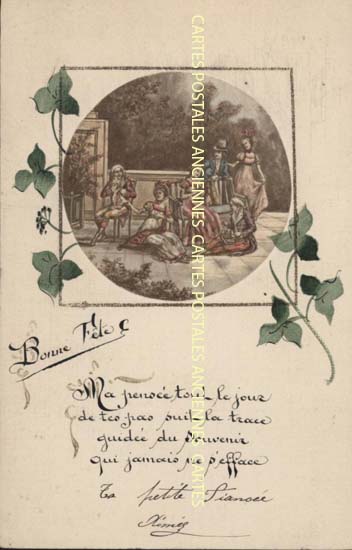 CARTES POSTALES ANCIENNES CARTES POSTALES ANCIENNES CARTES
Bonne Fête
Ma pensée tout le jour
de tes pas suit la trace
guidée du souvenir
qui jamais ne s'efface
Ta petite Fiancée